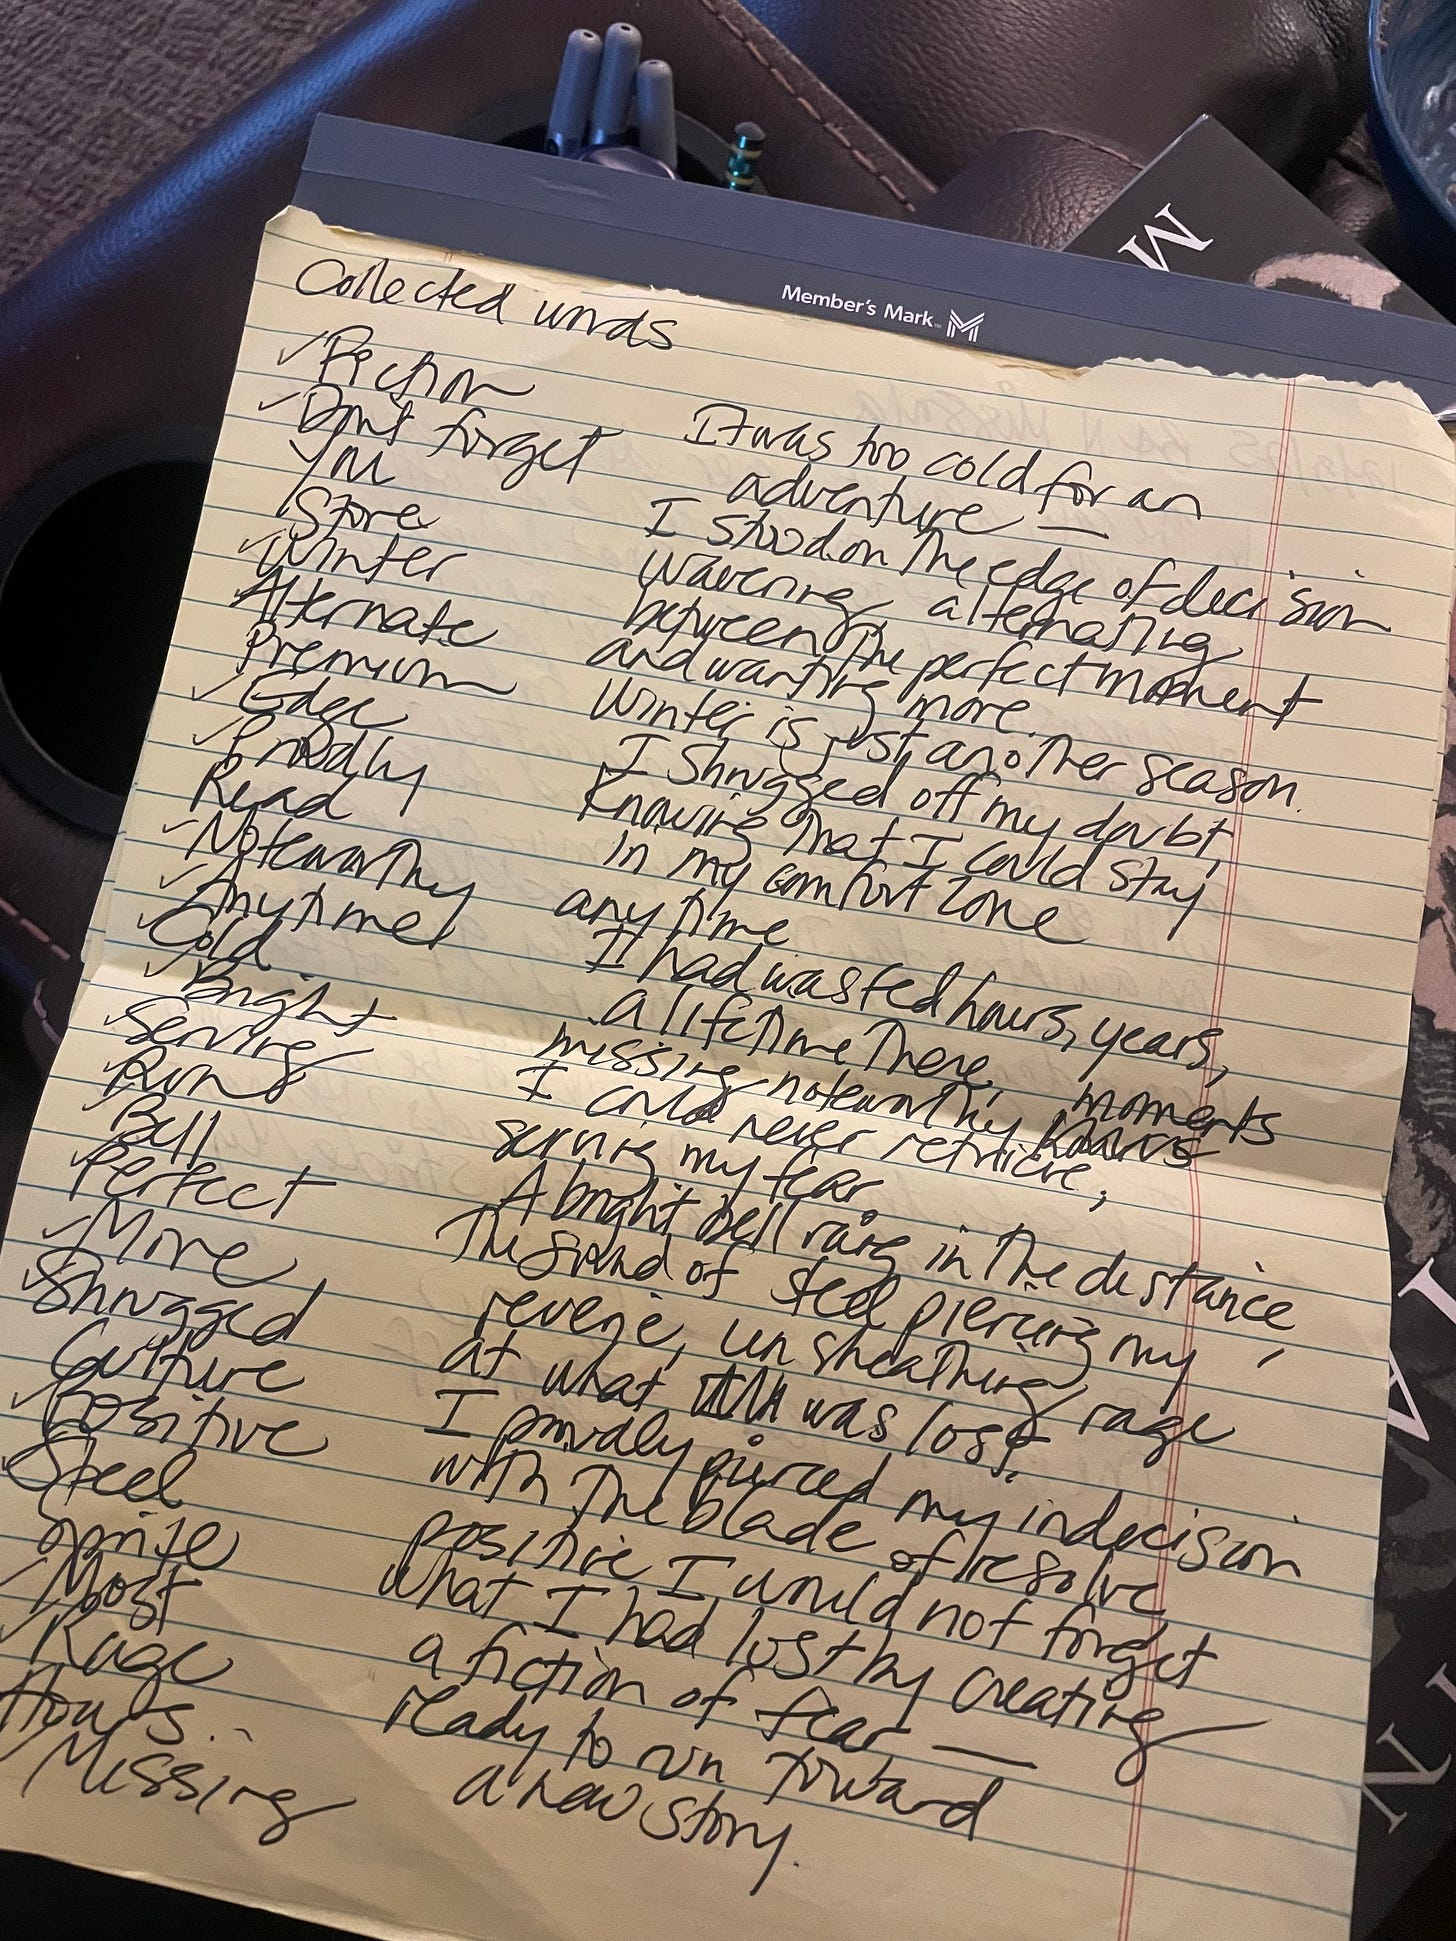 Member's Mark
M
Collected words
✓ Fiction
✓ Don't forget
You
Store
✓ Winter
Alternate
Premium
✓ Edge
✓ Proudly
Read
✓ Noteworthy
✓ Anytime
✓ Cold
✓ Bright
✓ Serving
✓ Run
Bell
✓ Perfect
✓ More
✓ Shrugged
Culture
✓ Positive
Steel
Sprite
✓ Most
✓ Rage
Hours
✓ Missing
It was too cold for an
adventure —
I stood on the edge of decision
wavering, alternating
between the perfect moment
and wanting more.
Winter is just another season.
I shrugged off my doubt,
knowing that I could stay
in my comfort zone
any time
I had wasted hours, years,
a lifetime there,
missing noteworthy moments
I could never retrieve,
serving my fear
A bright bell rang in the distance,
The sound of steel piercing my
reverie, unsheathing rage
at what was lost.
I proudly pierced my indecision
with the blade of resolve
positive I would not forget
what I had lost by creating
a fiction of fear —
ready to run toward
a new story.